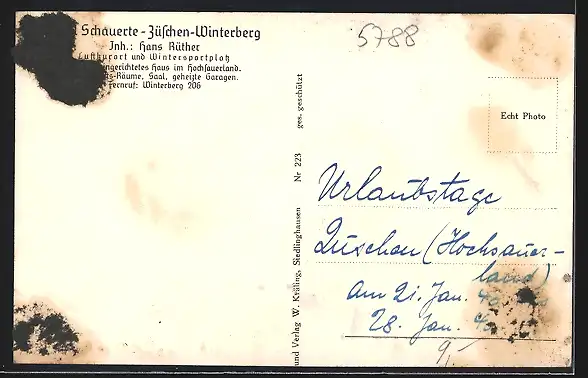 Schauerte-Züschen-Winterberg
Inh.: Hans Rüther
Luftkurort und Wintersportplatz
Haus im Hochsauerland.
Räume, Saal, geheizte Garagen.
Fernruf: Winterberg 206
5788
Echt Photo
und Verlag W. Kräling, Siedlinghausen Nr 223 ges. geschützt
Urlaubstage
Züschen (Hochsauer-
land)
am 21. Jan.
28. Jan.